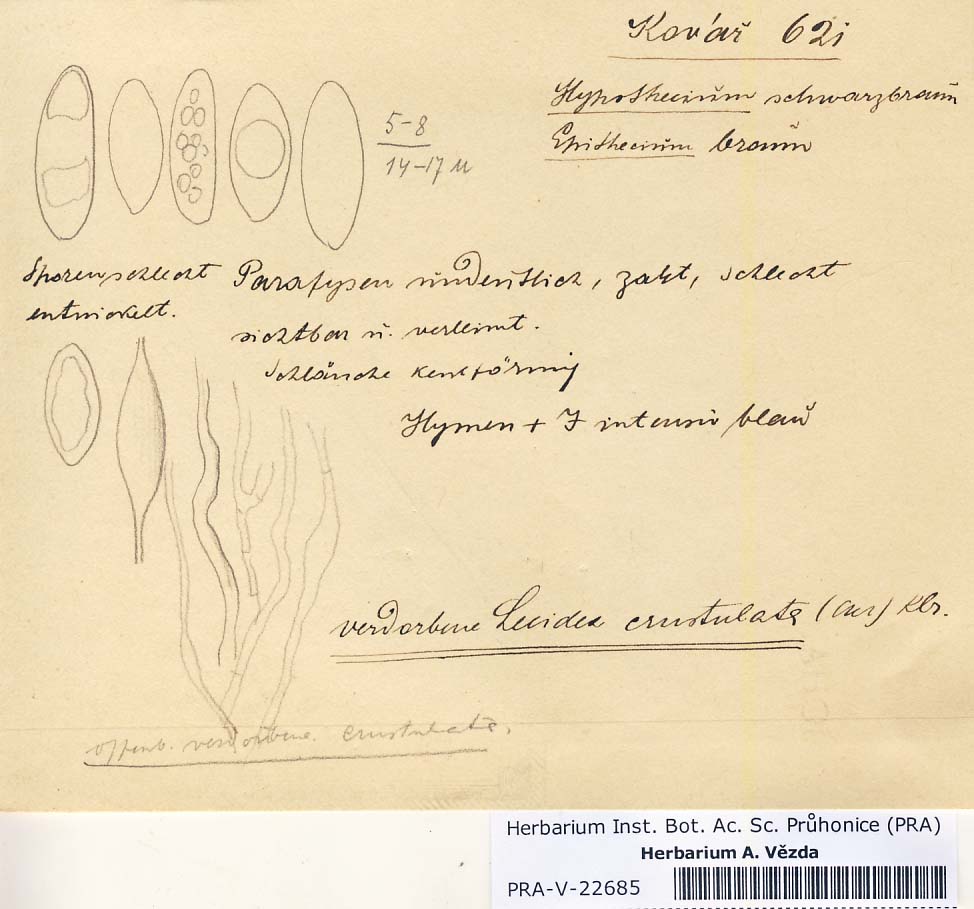 Kovář 62i
Hypothecium schwarzbraun
Epithecium braun
5-8
14-17 µ
Sporen schlecht
entwickelt.
Parafysen undeutlich, zart, schlecht
sichtbar u. verleimt.
Schläuche keulförmig
Hymen + J intensiv blau
verdorbene Lecidea crustulata (Ach) Kbr.
offenb. verdorbene crustulata.
Herbarium Inst. Bot. Ac. Sc. Průhonice (PRA)
Herbarium A. Vězda
PRA-V-22685